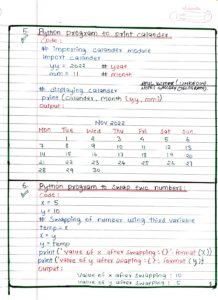 5. Python program to print calander
Code:
# Importing calander module
import calander
yy = 2022 # year
mm = 11 # month
# displaying calander
print (calander. month (yy, mm))
Output:
Nov 2022
Mon Tue Wed Thu Fri Sat Sun
1 2 3 4 5 6
7 8 9 10 11 12 13
14 15 16 17 18 19 20
21 22 23 24 25 26 27
28 29 30
6. Python program to swap two numbers:
Code:
x = 5
y = 10
# Swapping of number using third variable
temp = x
x = y
y = temp
print ('value of x after swapping: {}'. format (x))
print ('value of y after swaping: {}'. format (y))
Output:
Value of x after swapping : 10
Value of y after swapping : 5